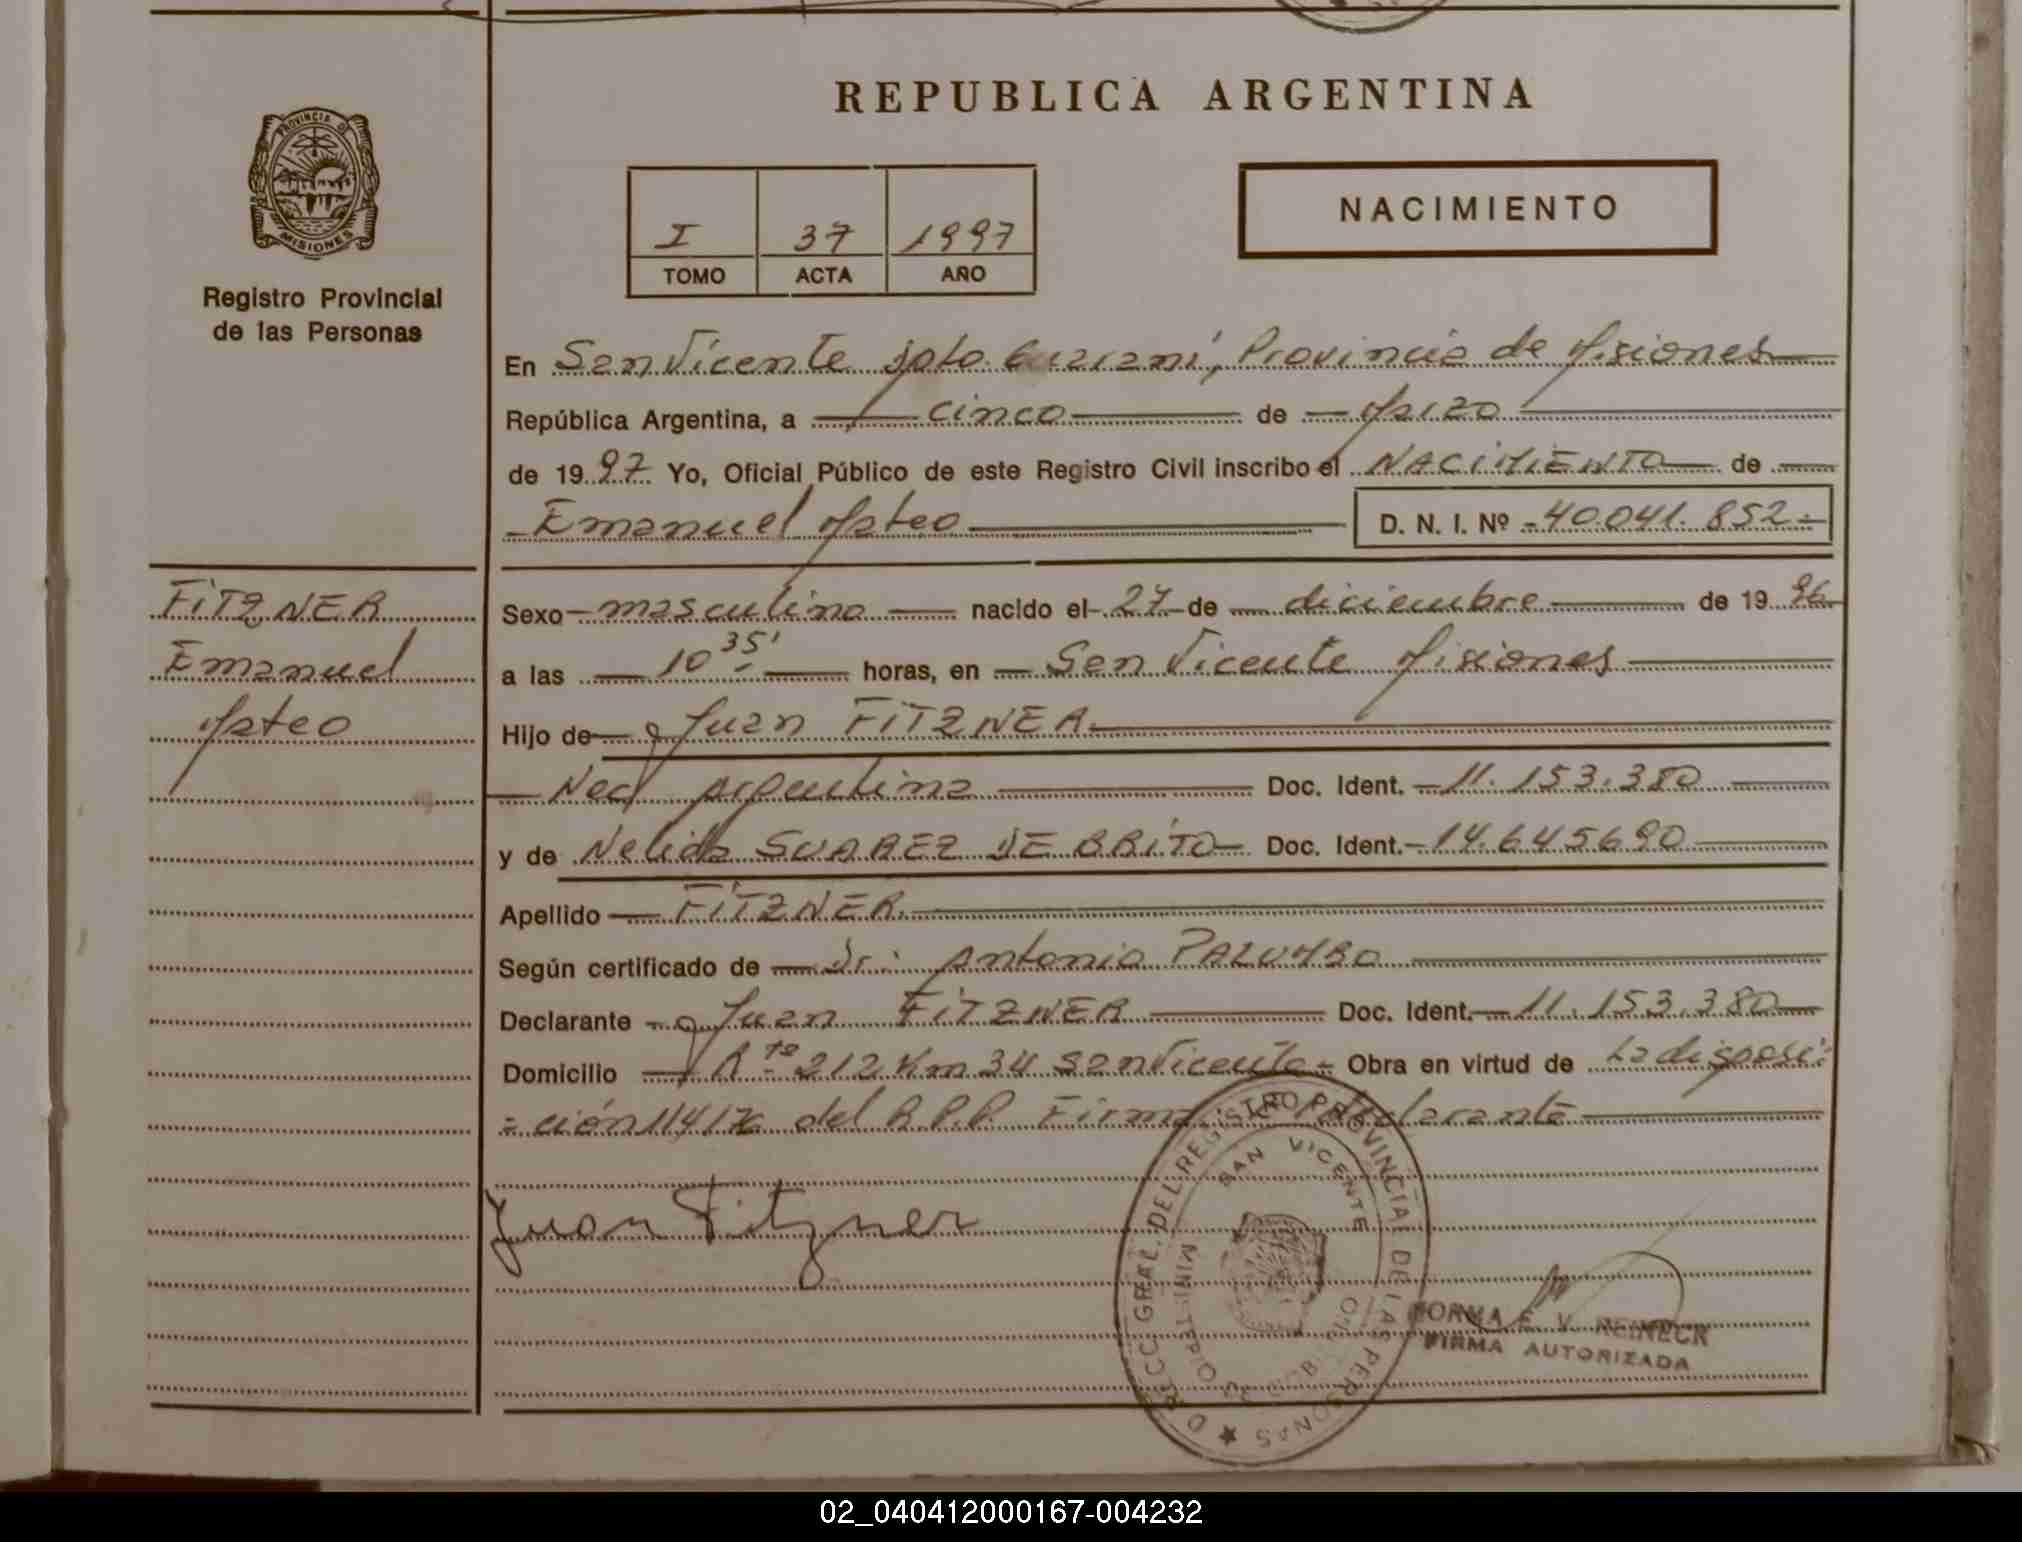 REPUBLICA ARGENTINA
PROVINCIA DE
MISIONES
Registro Provincial
de las Personas
I 37 1997
TOMO ACTA AÑO
NACIMIENTO
En San Vicente Dpto. Guaraní, Provincia de Misiones
República Argentina, a cinco de Marzo
de 1997 Yo, Oficial Público de este Registro Civil inscribo el NACIMIENTO de
Emanuel Mateo D. N. I. Nº 40.041.852.-
FITZNER
Emanuel
Mateo
Sexo masculino nacido el 27 de diciembre de 1996
a las 10 35' horas, en San Vicente Misiones
Hijo de Juan FITZNER
Nac. Argentina Doc. Ident. 11.153.380
y de Nelida SUAREZ DE BRITO Doc. Ident. 14.645690
Apellido FITZNER.
Según certificado de Dr. Antonio PALUMBO
Declarante Juan FITZNER Doc. Ident. 11.153.380
Domicilio Rta 212 Km 34 San Vicente - Obra en virtud de La disposi-
-ción 114/76 del R.P.P. Firma el declarante
Juan Fitzner
DIRECC. GRAL. DEL REGISTRO PROVINCIAL DE LAS PERSONAS
SAN VICENTE
MINISTERIO DE GOBIERNO
NORMA E. V. REINECK
FIRMA AUTORIZADA
02_040412000167-004232